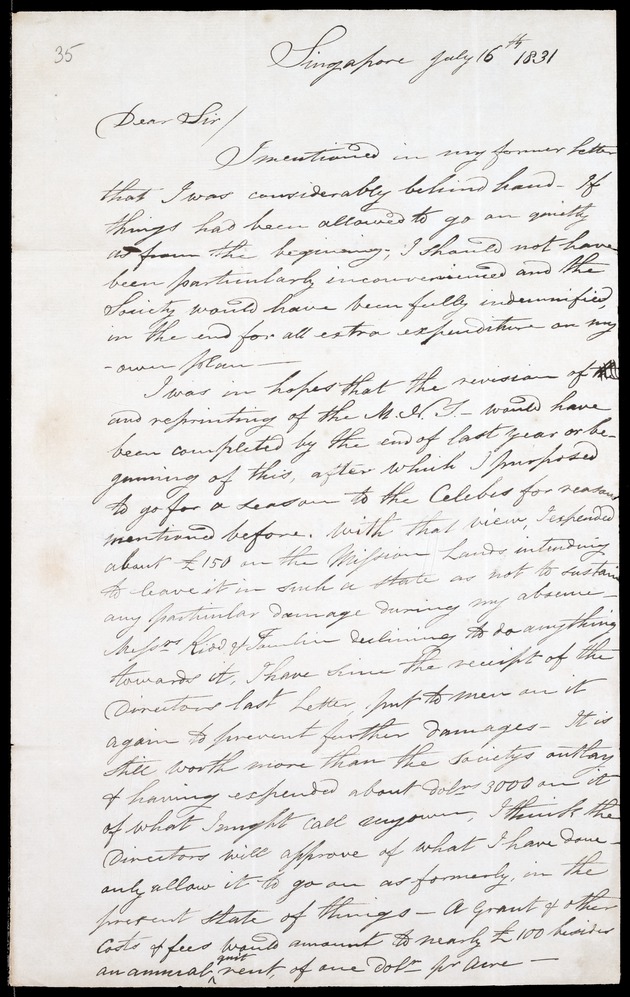 35
Singapore July 16th 1831
Dear Sir/
I mentioned in my former letter
that I was considerably behind hand - If
things had been allowed to go on quietly
as from the begining, I should not have
been particularly inconvenienced and the
Society would have been fully indemnified
in the end for all extra expenditure on my
- own plan -
I was in hopes that the revision of
and reprinting of the M. N. T. - would have
been completed by the end of last year or be-
ginning of this, after which I purposed
to go for a season to the Celebes for reasons
mentioned before. With that view, I expended
about £150 on the Mission Lands intending
to leave it in such a state as not to sustain
any particular damage during my absence -
Messrs Kidd & Tomlin declining to do anything
towards it, I have since the receipt of the
Directors last Letter, put to men on it
again to prevent further damages - It is
still worth more than the societys outlay
& having expended about dolrs 3000 on it
of what I might call my own, I think the
Directors will approve of what I have done -
only allow it to go on as formerly, in the
present state of things - A Grant & other
costs & fees would amount to nearly £100 besides
an annual quit rent, of one dolr pr acre -